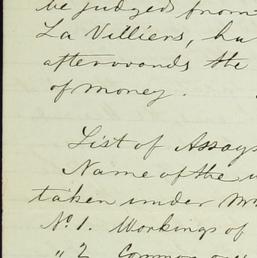 be judged from
La Villiers, hu
afterwards the
of money.
List of Assays
Name of the
taken under Mr
No. 1. Workings of
" 2 Common